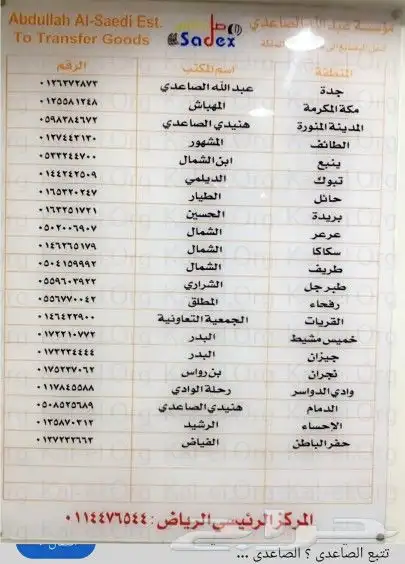 Abdullah Al-Saedi Est.
To Transfer Goods
Sadex
مؤسسة عبدالله الصاعدي
المنطقة اسم المكتب الرقم
جدة عبدالله الصاعدي ٠١٢٦٣٧٢٨٧٣
مكة المكرمة المهباش ٠١٢٥٥٨١٢٤٨
المدينة المنورة هنيدي الصاعدي ٠٥٩٨٣٨٤٦٧٢
الطائف المشهور ٠١٢٧٤٤٣١٣٠
ينبع ابن الشمال ٠٥٣٣٢٤٤٧٠٠
تبوك الديلمي ٠١٤٤٢٤٢٥٠٩
حائل الطيار ٠١٦٥٣٢٠٢٤٧
بريدة الحسين ٠١٦٣٢٥١٧٢١
عرعر الشمال ٠٥٠٢٠٠٦٩٠٧
سكاكا الشمال ٠١٤٦٢٦٥١٧٩
طريف الشمال ٠٥٠٤١٥٩٩٩٢
طبرجل الشراري ٠٥٥٩٦٠٣٩٢٢
رفحاء المطلق ٠٥٥٦٧٧٠٠٤٢
القريات الجمعية التعاونية ٠١٤٦٤٢٢٩٠٠
خميس مشيط البدر ٠١٧٢٢١٠٧٧٢
جيزان البدر ٠١٧٣٢٢٤٤٤٤
نجران بن رواس ٠١٧٥٢٣٧٠٦٢
وادي الدواسر رحلة الوادي ٠١١٧٨٤٥٥٨٨
الدمام هنيدي الصاعدي ٠٥٠٨٥٢٥٦٨٩
الإحساء الرشيد ٠١٣٥٨٧٠٢١٢
حفر الباطن الفياض ٠١٣٧٢٢٢٦٦٢
المركز الرئيسي الرياض : ٠١١٤٤٧٦٥٤٤
تتبع الصاعدي ؟ الصاعدي ...